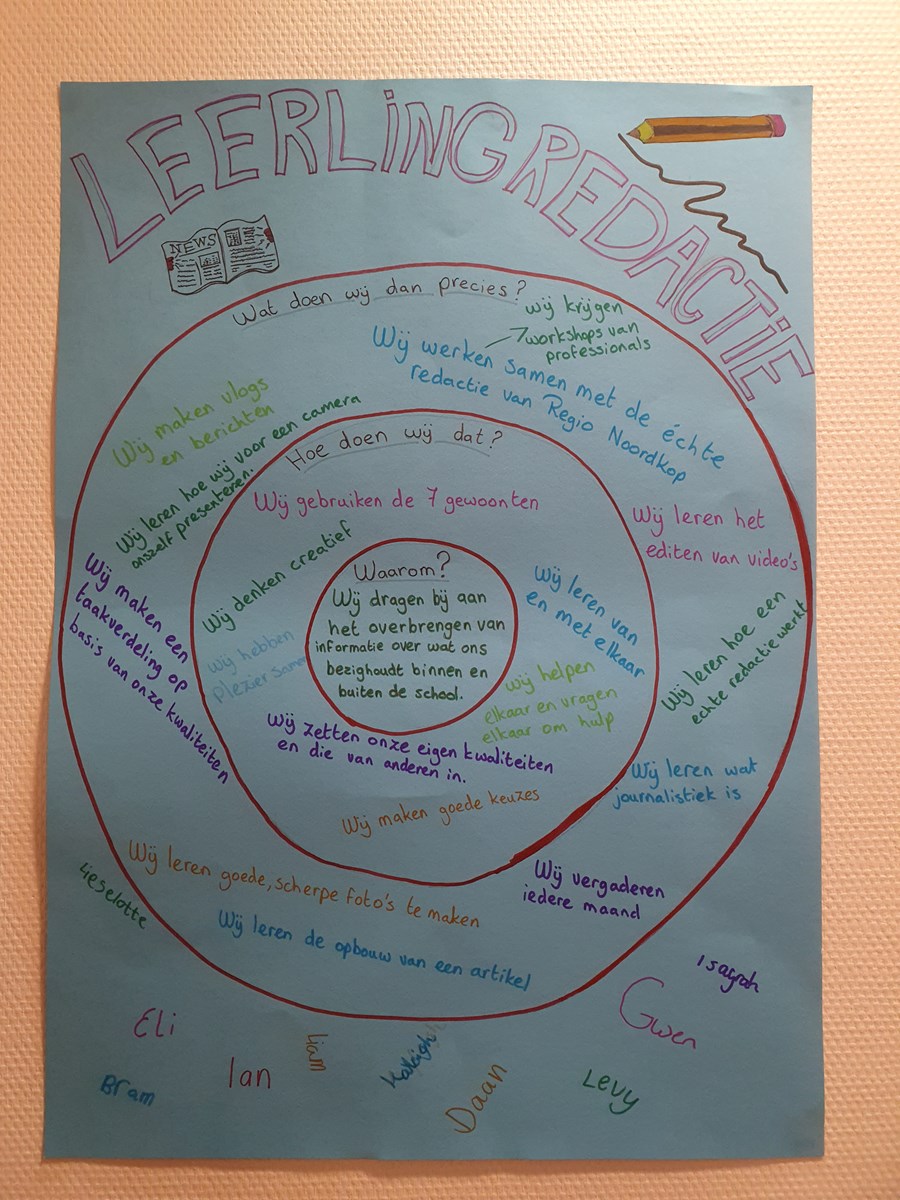 LEERLINGREDACTIE
NEWS
Wat doen wij dan precies?
wij krijgen
workshops van
professionals
Wij werken samen met de échte
redactie van Regio Noordkop
Wij maken vlogs
en berichten
Wij leren hoe wij voor een camera
onszelf presenteren.
Wij maken een
taakverdeling op
basis van onze kwaliteiten
Wij leren het
editen van video's
Wij leren hoe een
echte redactie werkt
Wij leren wat
journalistiek is
Wij vergaderen
iedere maand
Wij leren goede, scherpe foto's te maken
Wij leren de opbouw van een artikel
Hoe doen wij dat?
Wij gebruiken de 7 gewoonten
Wij denken creatief
Wij hebben
plezier samen
Wij leren van
en met elkaar
wij helpen
elkaar en vragen
elkaar om hulp
Wij zetten onze eigen kwaliteiten
en die van anderen in.
Wij maken goede keuzes
Waarom?
Wij dragen bij aan
het overbrengen van
informatie over wat ons
bezighoudt binnen en
buiten de school.
Lieselotte
Eli
Bram
Ian
Liam
Daan
Levy
Gwen